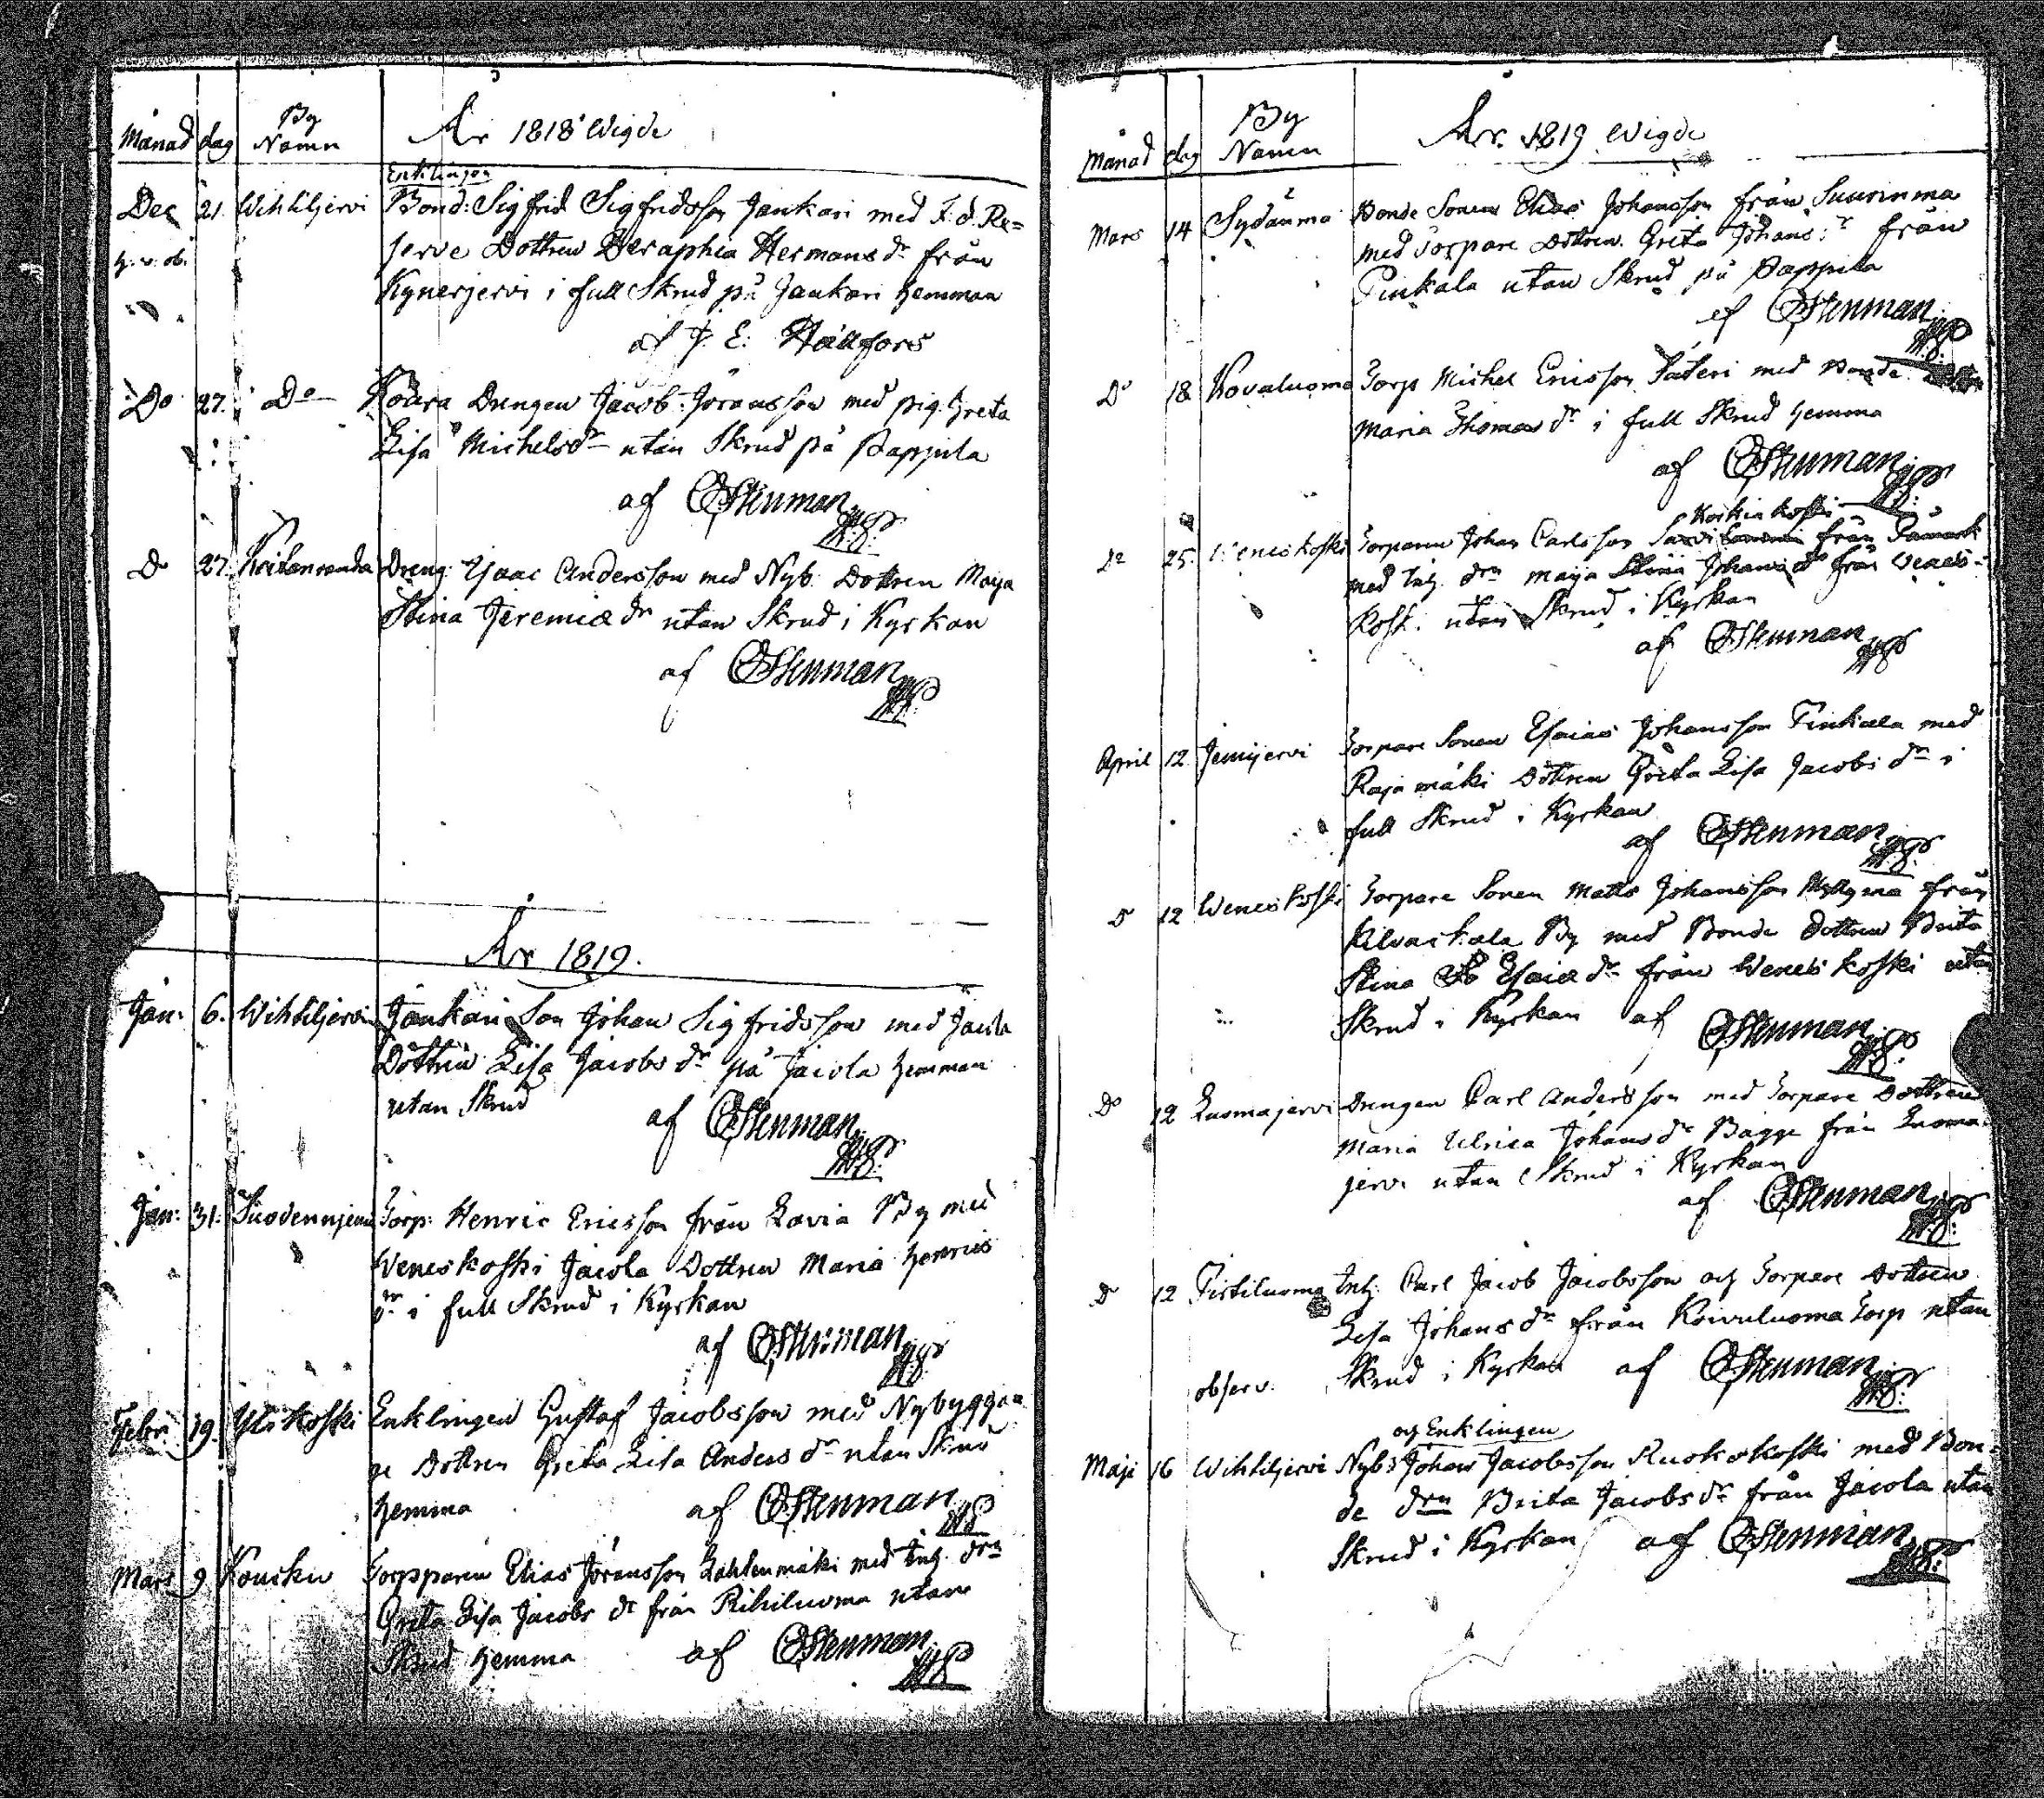 Månad dag By Namn År 1818 Wigde
Enklingen
Dec 21. Wihteljervi Bond: Sigfrid Sigfridsson Jankari med F: d. Re=
serve Dottren Seraphia Hermans dr från
Kynerjervi i full Skrud på Jankari hemman
af J. E: Hällfors
Do 27. Do Koura Drengen Jacob Göransson med pig. Greta
Lisa Michelsdr utan Skrud på Pappila
af CStenman
Do 27. Dreng: Isaac Andersson med Nyb: Dottren Maja
Stina Jeremiæ dr utan Skrud i Kyrkan
af CStenman
År 1819.
Jan: 6. Wihteljervi Jankari Son Johan Sigfridsson med Jacola
Dottren Lisa Jacobs dr på Jacola hemman
utan Skrud af CStenman
Jan: 31. Suodennjemi Torp: Henric Ericsson från Lavia By med
Weneskoski Jacola Dottren Maria Henrics
dr i full Skrud i Kyrkan
af CStenman
Febr: 19. Yliskoski Enklingen Gustaf Jacobsson med Nybygga=
re Dottren Greta Lisa Anders dr utan Skrud
hemma af CStenman
Mars 9 Koucku Torpparen Elias Göransson Lahtenmäki med Inh. drn
Greta Lisa Jacobs dr från Rihiluoma utan
Skrud hemma af CStenman
Månad dag By Namn År 1819 Wigde
Mars 14 Sydänma Bonde Sonen Elias Johansson från Suurinma
med Torpare Dottren Greta Johans: dr från
Tinkala utan Skrud på Pappila
af CStenman
Do 18 Kovaluoma Torp Michel Ericsson Säteri med Bonde
Maria Thomas dr i full Skrud hemma
af CStenman
Koskinkoski
Do 25. Weneskoski Torparen Johan Carlsson från Tämark
med Inh. drn Maija Stina Johans dr från Wenes=
kosk. utan Skrud i Kyrkan
af CStenman
April 12 Jemijervi Torpare Sonen Esaias Johansson Tinkala med
Rajamäki Dottren Greta Lisa Jacobs dr i
full Skrud i Kyrkan
af CStenman
Do 12 Weneskoski Torpare Sonen Matts Johansson Myllyma från
Kilvaskala By med Bonde Dottren Brita
Stina Esaiæ dr från Weneskoski utan
Skrud i Kyrkan af CStenman
Do 12 Luomajervi Drengen Carl Andersson med Torpare Dottren
Maria Ulrica Johans dr Bagge från Luoma=
jervi utan Skrud i Kyrkan
af CStenman
Do 12 Tistiluoma Inh: Carl Jacob Jacobsson och Torpare Dottren
Lisa Johans dr från Koivuluoma Torp utan
observ. Skrud i Kyrkan af CStenman
och Enklingen
Maji 16 Wihteljervi Nyb: Johan Jacobsson Ruokokoski med Bon=
de drn Brita Jacobs dr från Jacola utan
Skrud i Kyrkan af CStenman